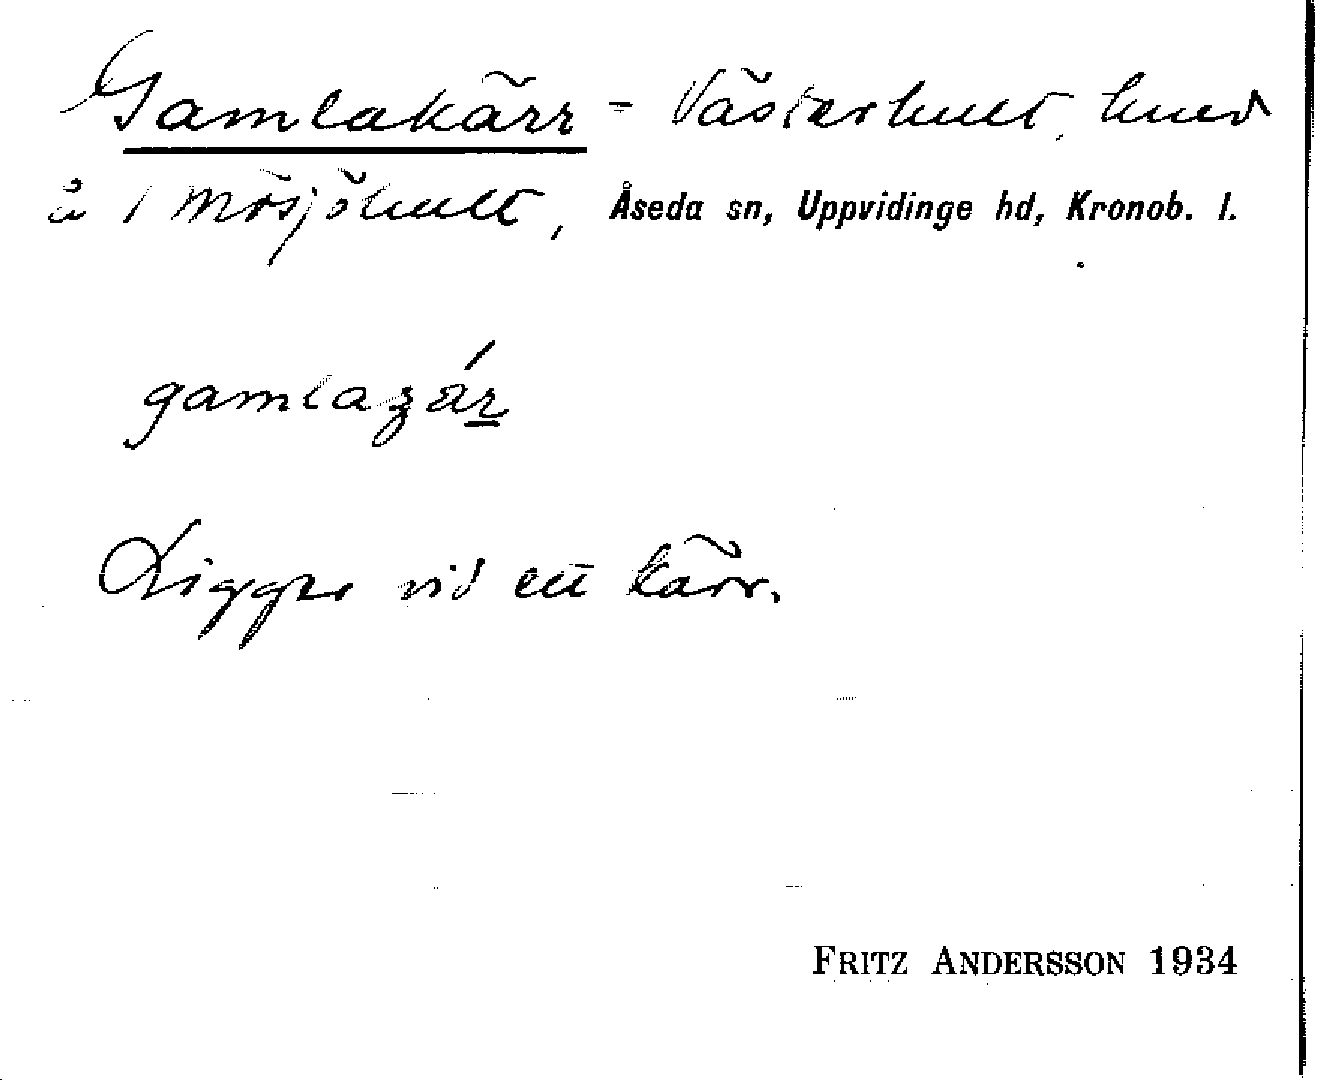 Gamlakärr = Västerhult, hmd
å 1 Mösjöhult, Åseda sn, Uppvidinge hd, Kronob. l.
gamlazár
Ligger vid ett kärr.
FRITZ ANDERSSON 1934